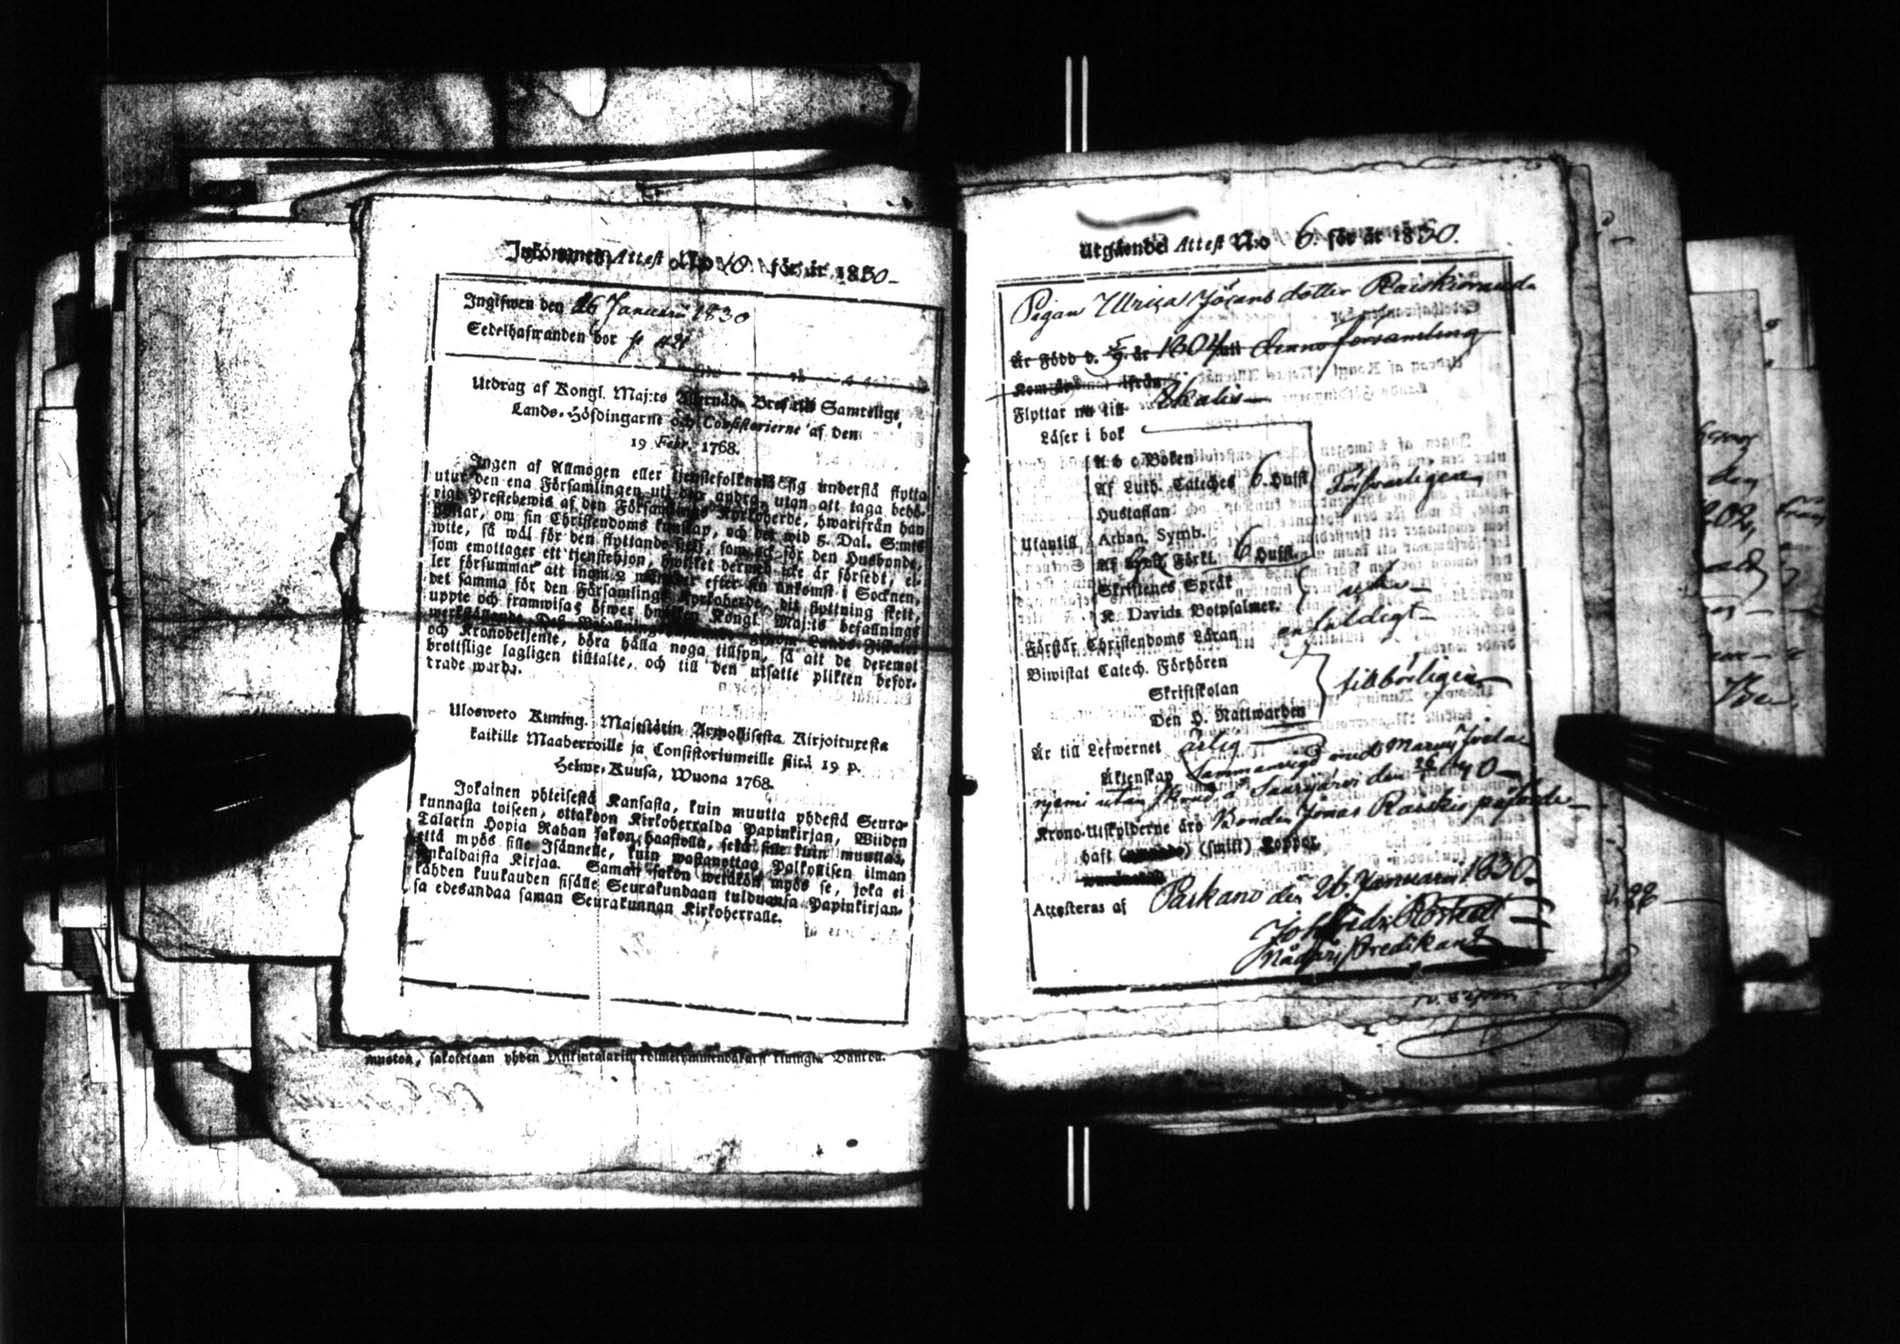 Inkommen Attest N:o 18 för år 1830
Ingifwen den 26 Januarii 1830
Sedelhafwanden bor
Utdrag af Kongl. Maj:ts Allernåd. Bref till Samtelige
Lands-Höfdingarne och Consistorierne af den
19 Febr. 1768.
Ingen af Allmogen eller tjenstefolk må sig understå flytta
utur den ena Församlingen uti den andra, utan att taga behö-
rigt Prestebewis af den Församlings Kyrkoherde, hwarifrån han
flyttar, om sin Christendoms kunskap, och det wid 5. Dal. S:mts
wite, så wäl för den flyttande sjelf, som ock för den Husbonde,
som emottager ett tjenstehjon, hwilket dermed icke är försedt, el-
ler försummar att inom 2 månader efter sin ankomst i Socknen,
det samma för den Församlings Kyrkoherde, dit flyttning skett,
uppte och framwisa; öfwer hwilken Kongl. Maj:ts befallnings
werkställande Dess Befallningshafwande genom Lands-Fiskaler
och Kronobetjente, böra hålla noga tillsyn, så att de deremot
brottslige lagligen tilltalte, och till den utsatte plikten befor-
trade warda.
Ulosweto Kuning. Majestätin Armollisesta Kirjoituxesta
kaikille Maaherroille ja Consistoriumeille siitä 19 p.
Helme-Kuusa, Wuona 1768.
Jokainen yhteisestä Kansasta, kuin muutta yhdestä Seura-
kunnasta toiseen, ottakoon Kirkoherralda Papinkirjan, Wiiden
Talarin Hopia Rahan sakon haastolla, sekä sille kuin muuttaa,
että myös sille Isännelle, kuin wastanottaa Palkollisen ilman
senkaldaista Kirjaa. Saman sakon wetäkön myös se, joka ei
kahden kuukauden sisälle Seurakundaan tulduansa Papinkirjan-
sa edesandaa saman Seurakunnan Kirkoherralle.
muotoa, sakotetaan yhden Riikintalarin kolmetymmendäkaxi killingin Bancoa.
Utgående Attest N:o 6. för år 1830.
Pigan Ulrica Johans dotter Raiskioranda
Är Född d. 5/9 år 1804 uti denna församling
Kommen ifrån
Flyttar nu till Ikalis
Läser i bok
A b c Boken
Af Luth. Cateches 6. Hufst
Hustaflan
Försvarligen
Utantill Athan. Symb.
Af Förkl. 6 Hufst.
Skriftenes Språk
K. Davids Botpsalmer.
Förstår Christendoms Läran enfaldigt
Biwistat Catech. Förhören
Skriftskolan
tillbörligen
Den H. Nattwarden
Är till Lefwernet ärlig
Äktenskap
Saarijärvi den
Krono-Utskylderne äro Bonden Jonas Raiskio påförde
haft (smitt) Koppor.
Attesteras af Parkano den 26 Januarii 1830.
Joh Fredr
Predikant